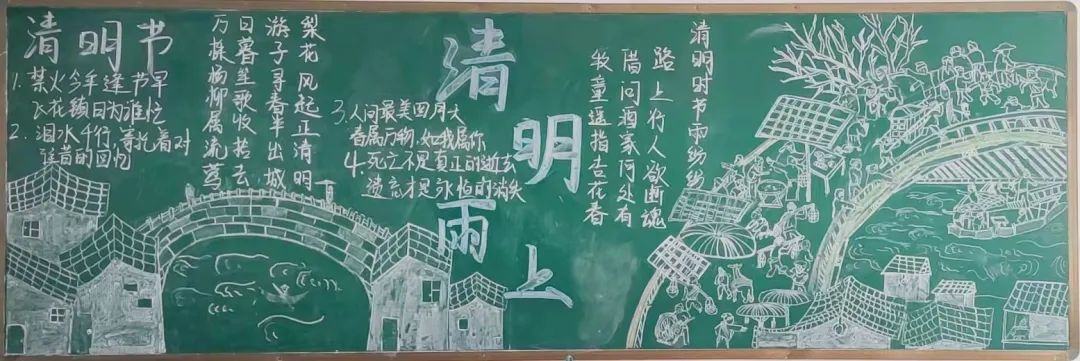 清明节
1. 某火今年逢节早
飞花镇日为谁忙
2. 泪水千行,寄托着对
往昔的回忆
梨花风起正清明
游子寻春半出城
日暮笙歌收拾去
万株杨柳属流莺
3.人间最美四月天
春属万物,如我属你
4.死亡不是真正的逝去
遗忘才是永恒的消失
清明雨上
清明时节雨纷纷
路上行人欲断魂
借问酒家何处有
牧童遥指杏花春